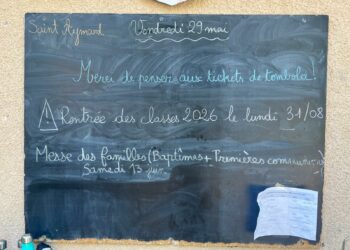 Saint Aymard
Vendredi 29 mai
Merci de penser aux tickets de tombola!
Rentrée des classes 2026 le lundi 31/08
Messe des familles (Baptêmes + Premières communions)
Samedi 13 juin